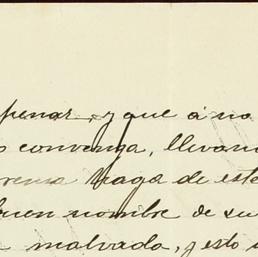 penar, y que á no
convenza, llevan
prensa haga de este
buen nombre de su
malvada, y esto